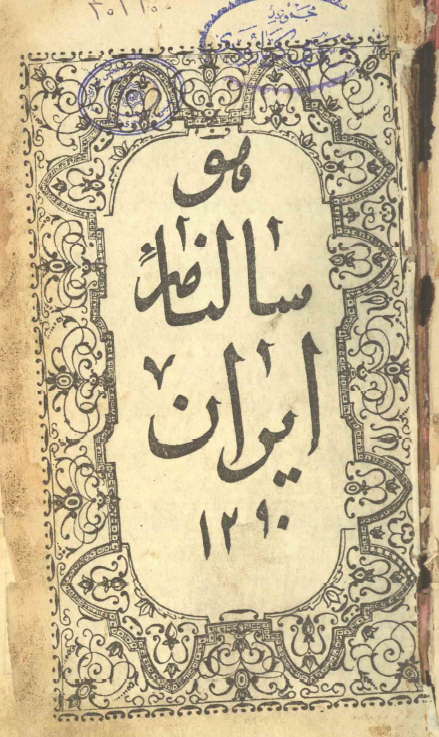 هو
سالنامه
ایران
۱۲۹۰